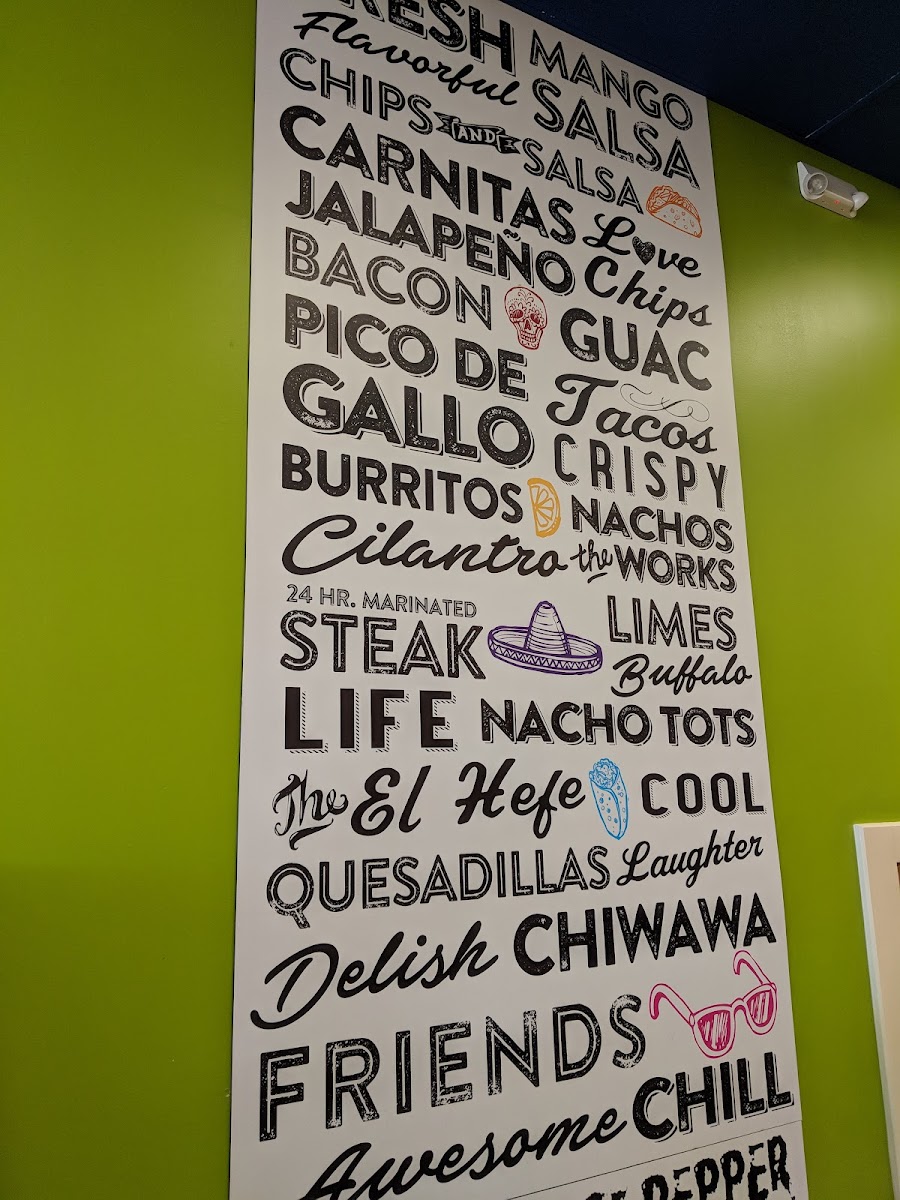 FRESH
Flavorful
MANGO
SALSA
CHIPS AND SALSA
CARNITAS
JALAPEÑO
Love
Chips
BACON
GUAC
PICO DE
GALLO
Tacos
CRISPY
BURRITOS
NACHOS
Cilantro
the WORKS
24 HR. MARINATED
STEAK
LIMES
Buffalo
LIFE
NACHO TOTS
The El Hefe
COOL
QUESADILLAS
Laughter
Delish
CHIWAWA
FRIENDS
Awesome
CHILL
PEPPER